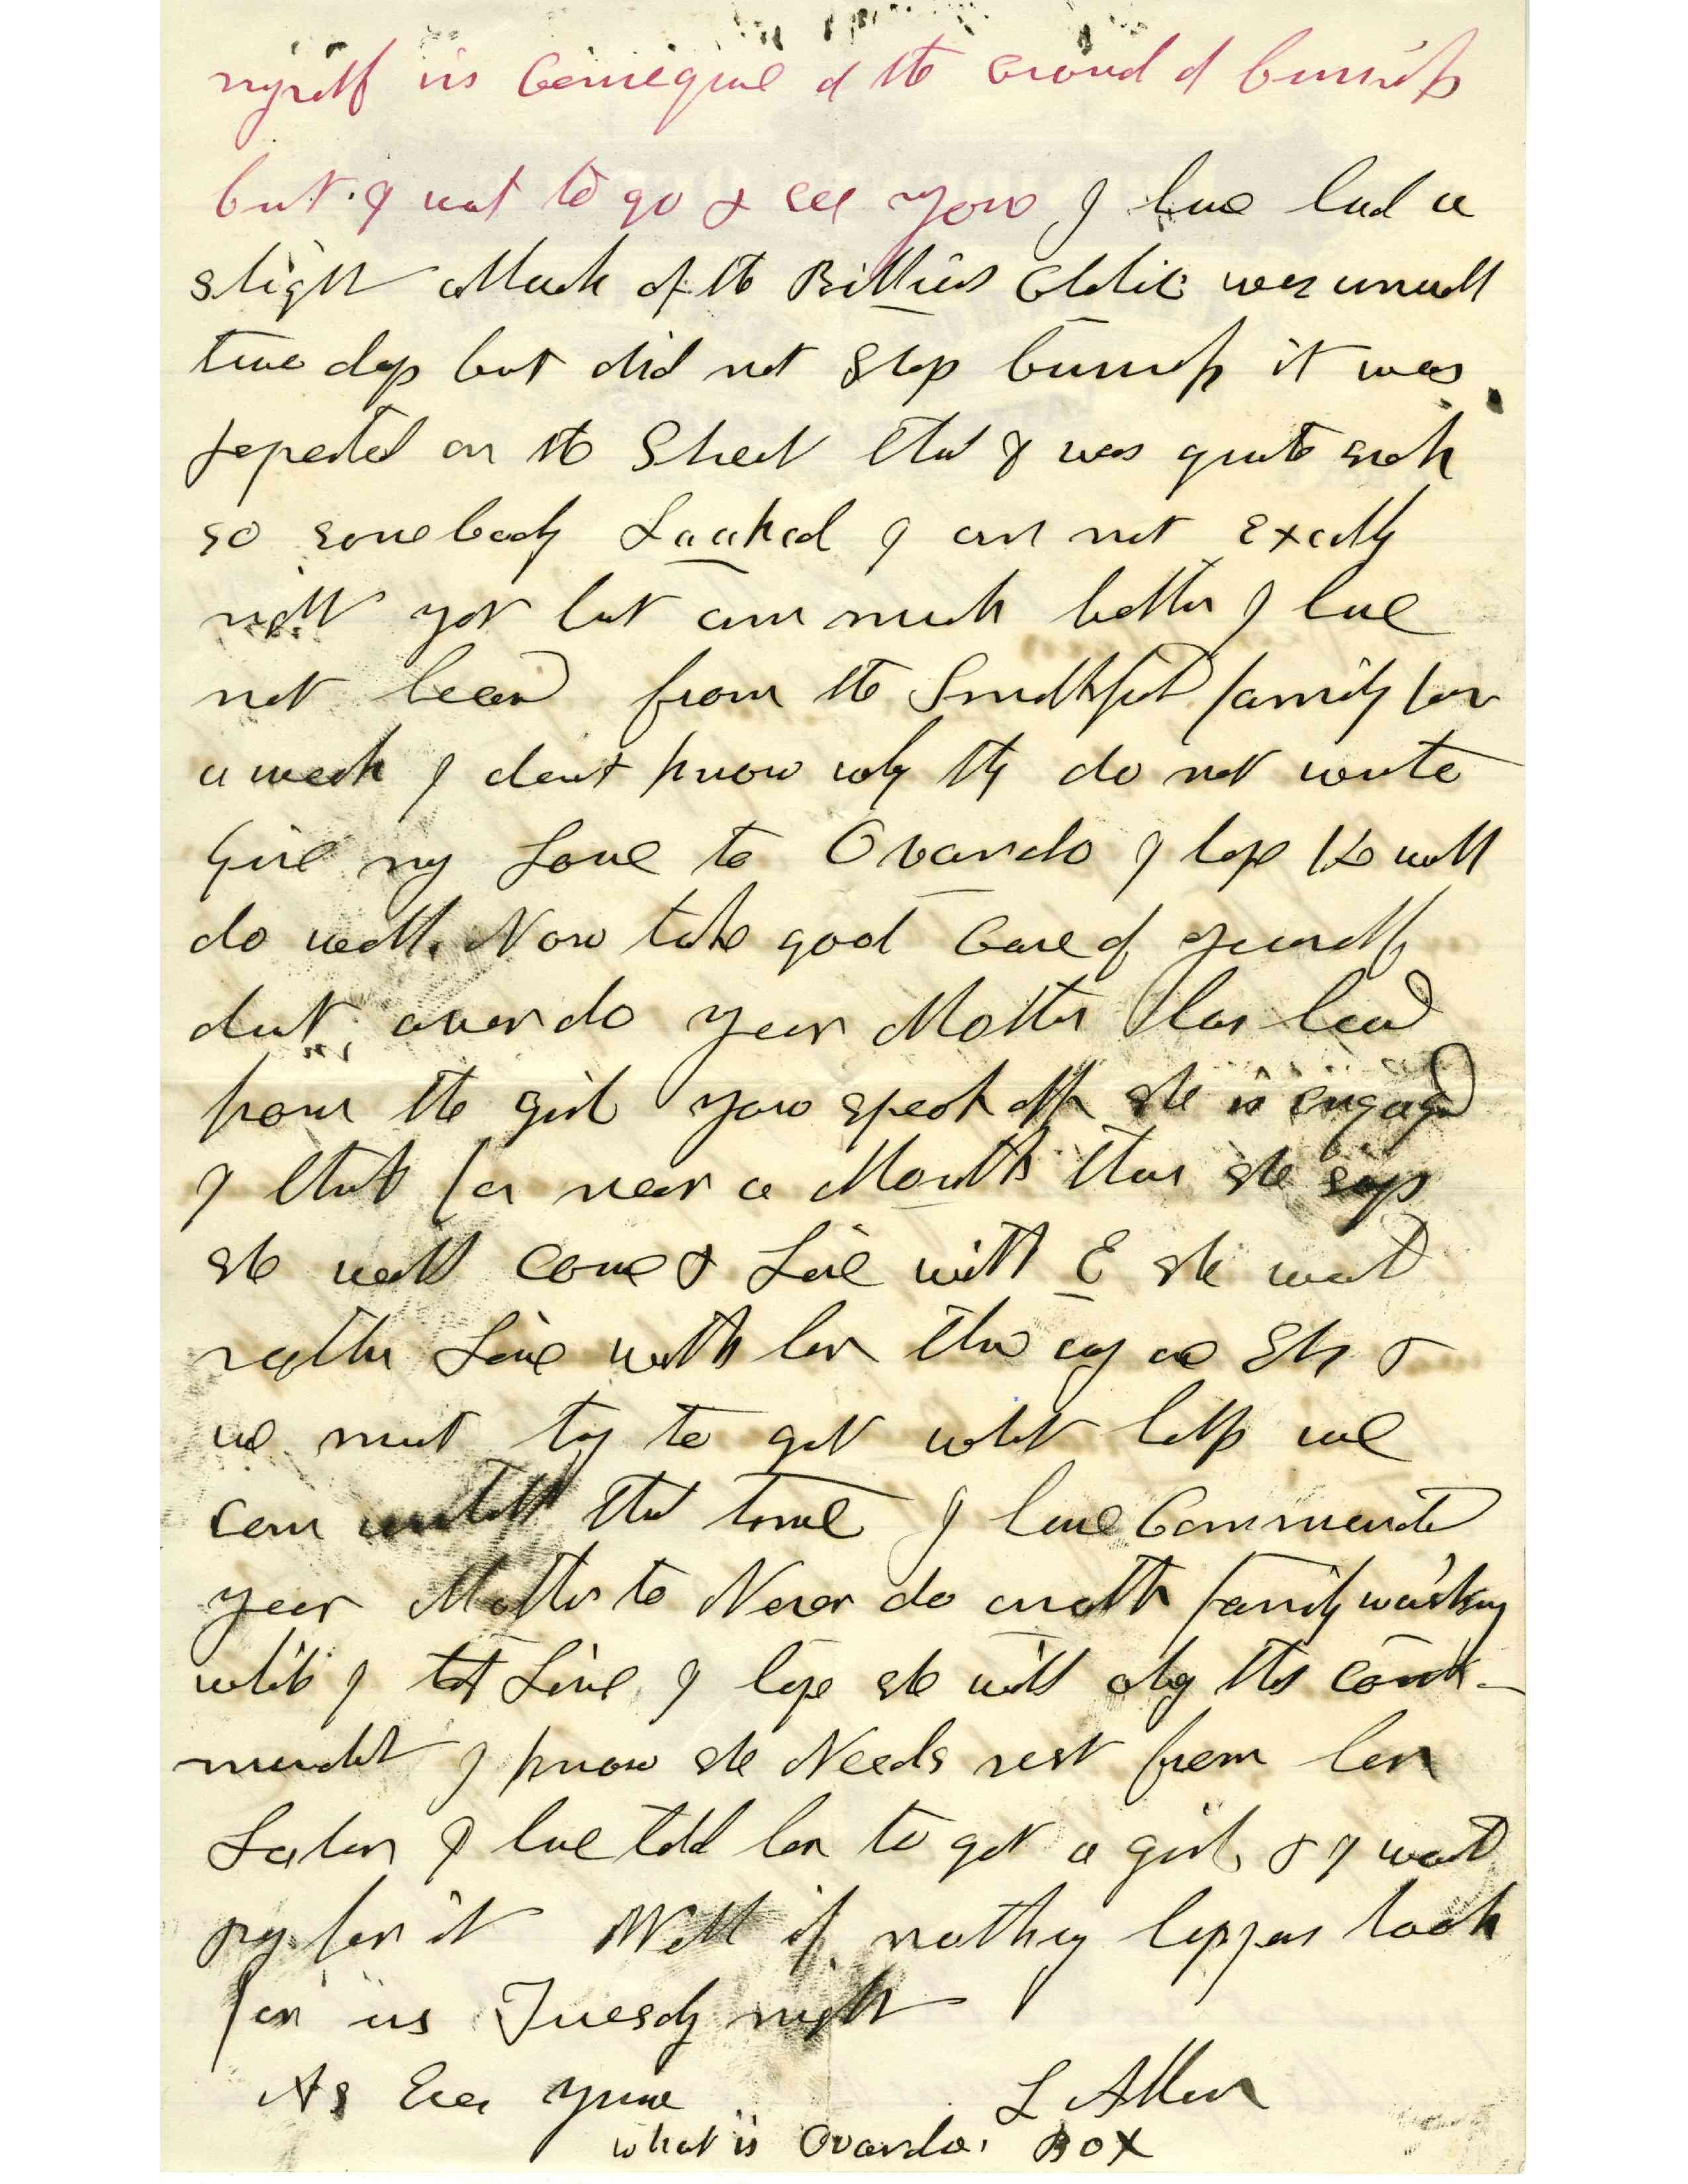 myself in Consequence of the crowd of business
but I want to go & see you I have had a
slight attack of the Billious Cholic was unwell
two days but did not stop business it was
reported on the Street that I was quite sick
so somebody Looked I am not Exactly
right yet but am much better I have
not heard from the family for
a week I dont know why they do not write
Give my Love to Ovando I hope He will
do well. Now take good Care of yourself
dont over do your Mother has heard
from the girl you speak off she is engaged
I think for near a Month then she says
she will come & Live with E she would
rather Live with her than any one Else &
we must try to get what help we
can untill that time I have Commanded
your Mother to Never do another family washing
while I Live I hope she will obey this comm-
mandt I know she Needs rest from her
Labor I have told her to get a girl & I would
pay for it Well if nothing happens look
for us Tuesday night
As Ever yours L Allen
what is Ovandos Box